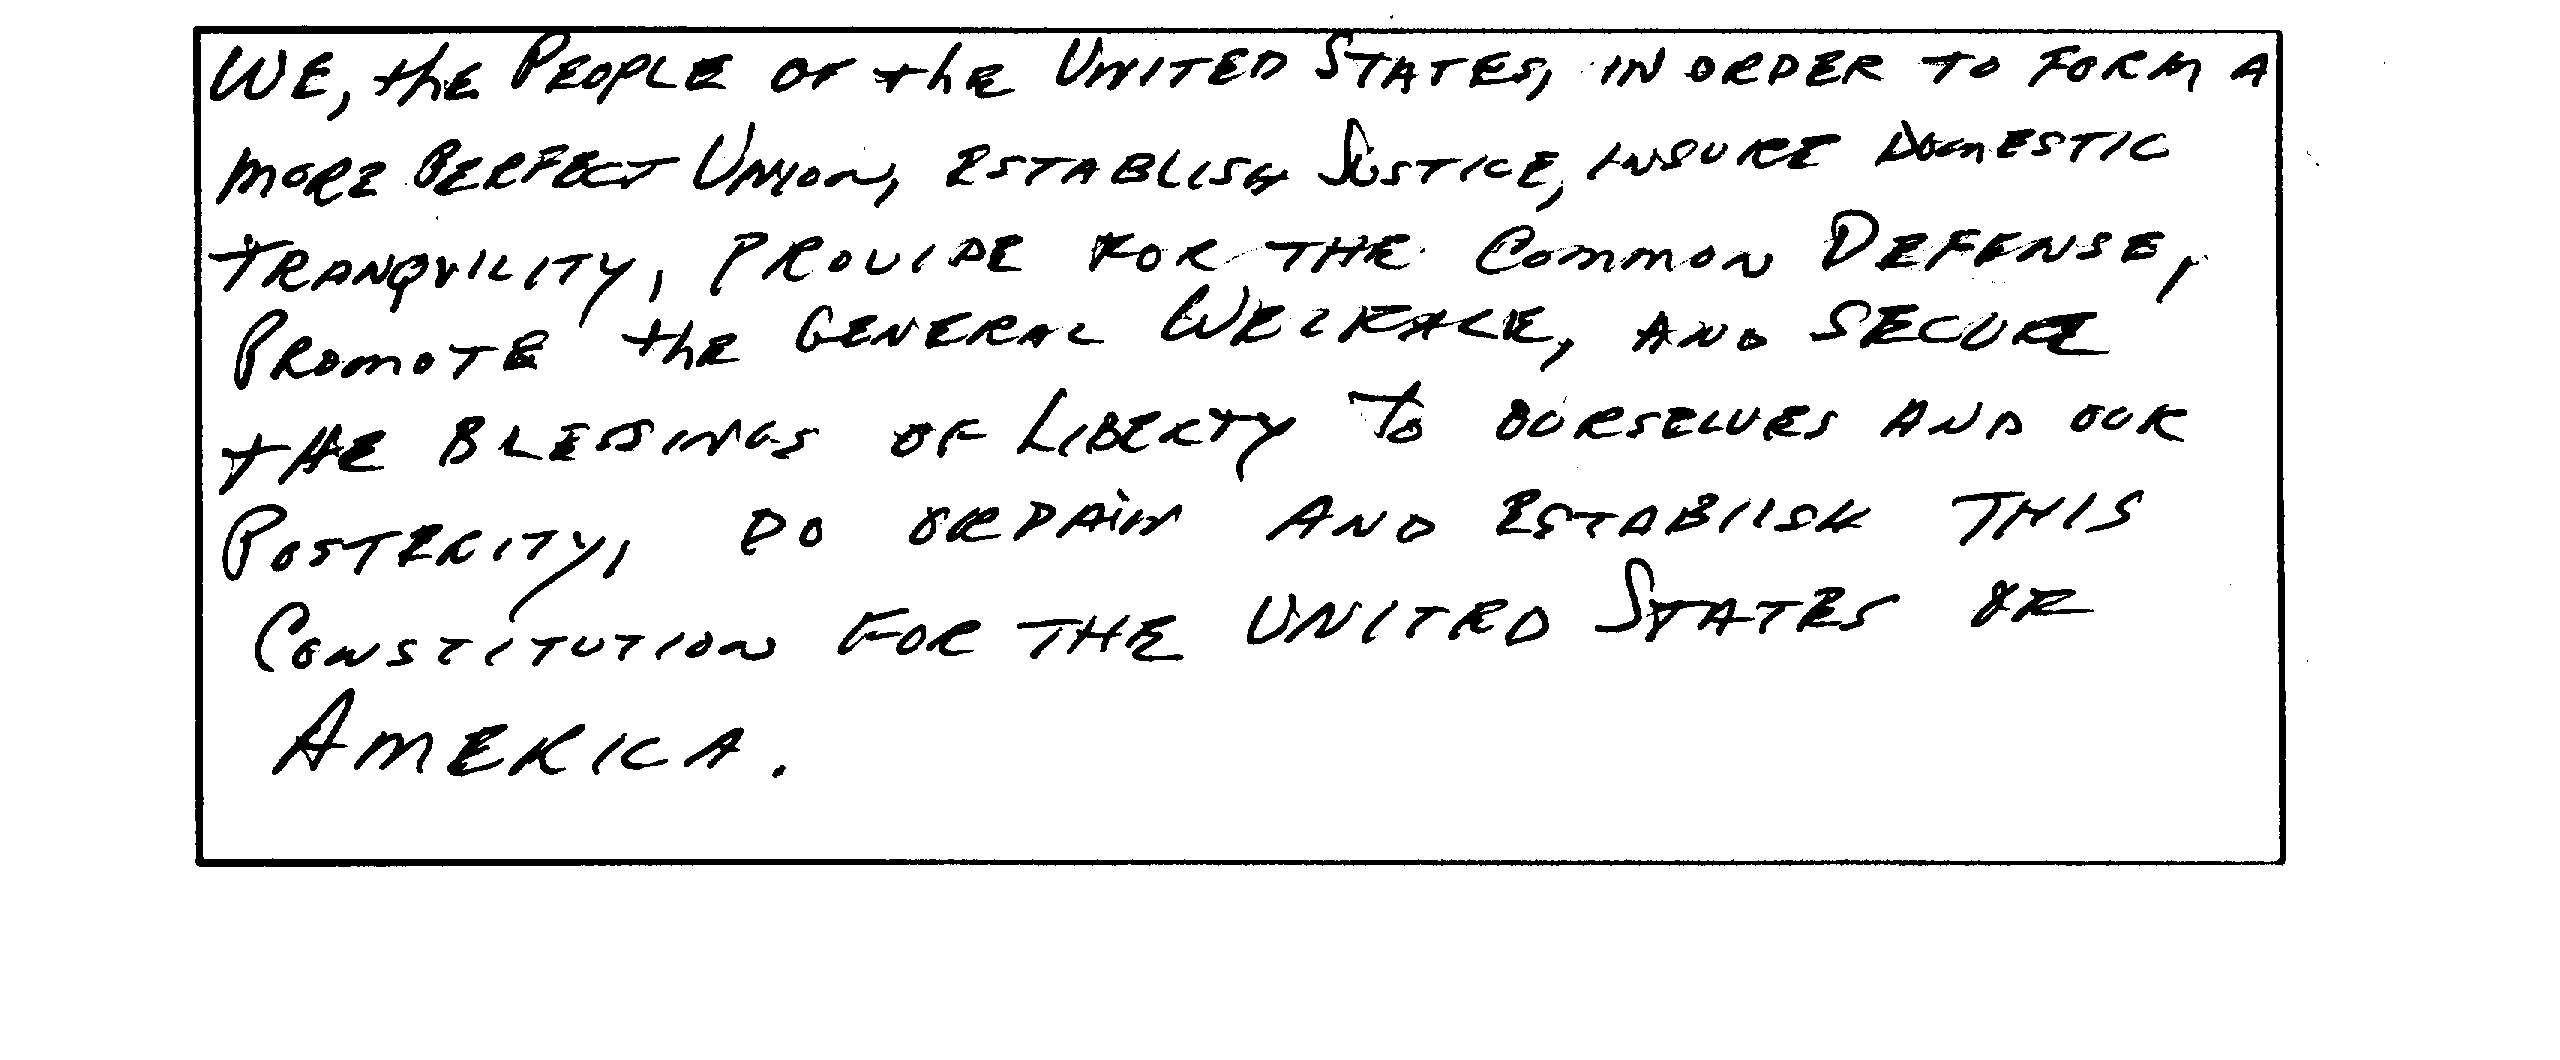 WE, the PEOPLE OF the UNITED STATES, IN ORDER TO FORM A
MORE PERFECT UNION, ESTABLISH JUSTICE, INSURE DOMESTIC
TRANQUILITY, PROVIDE FOR THE COMMON DEFENSE,
PROMOTE the GENERAL WELFARE, AND SECURE
THE BLESSINGS OF LIBERTY TO OURSELVES AND OUR
POSTERITY, DO ORDAIN AND ESTABLISH THIS
CONSTITUTION FOR THE UNITED STATES OF
AMERICA.